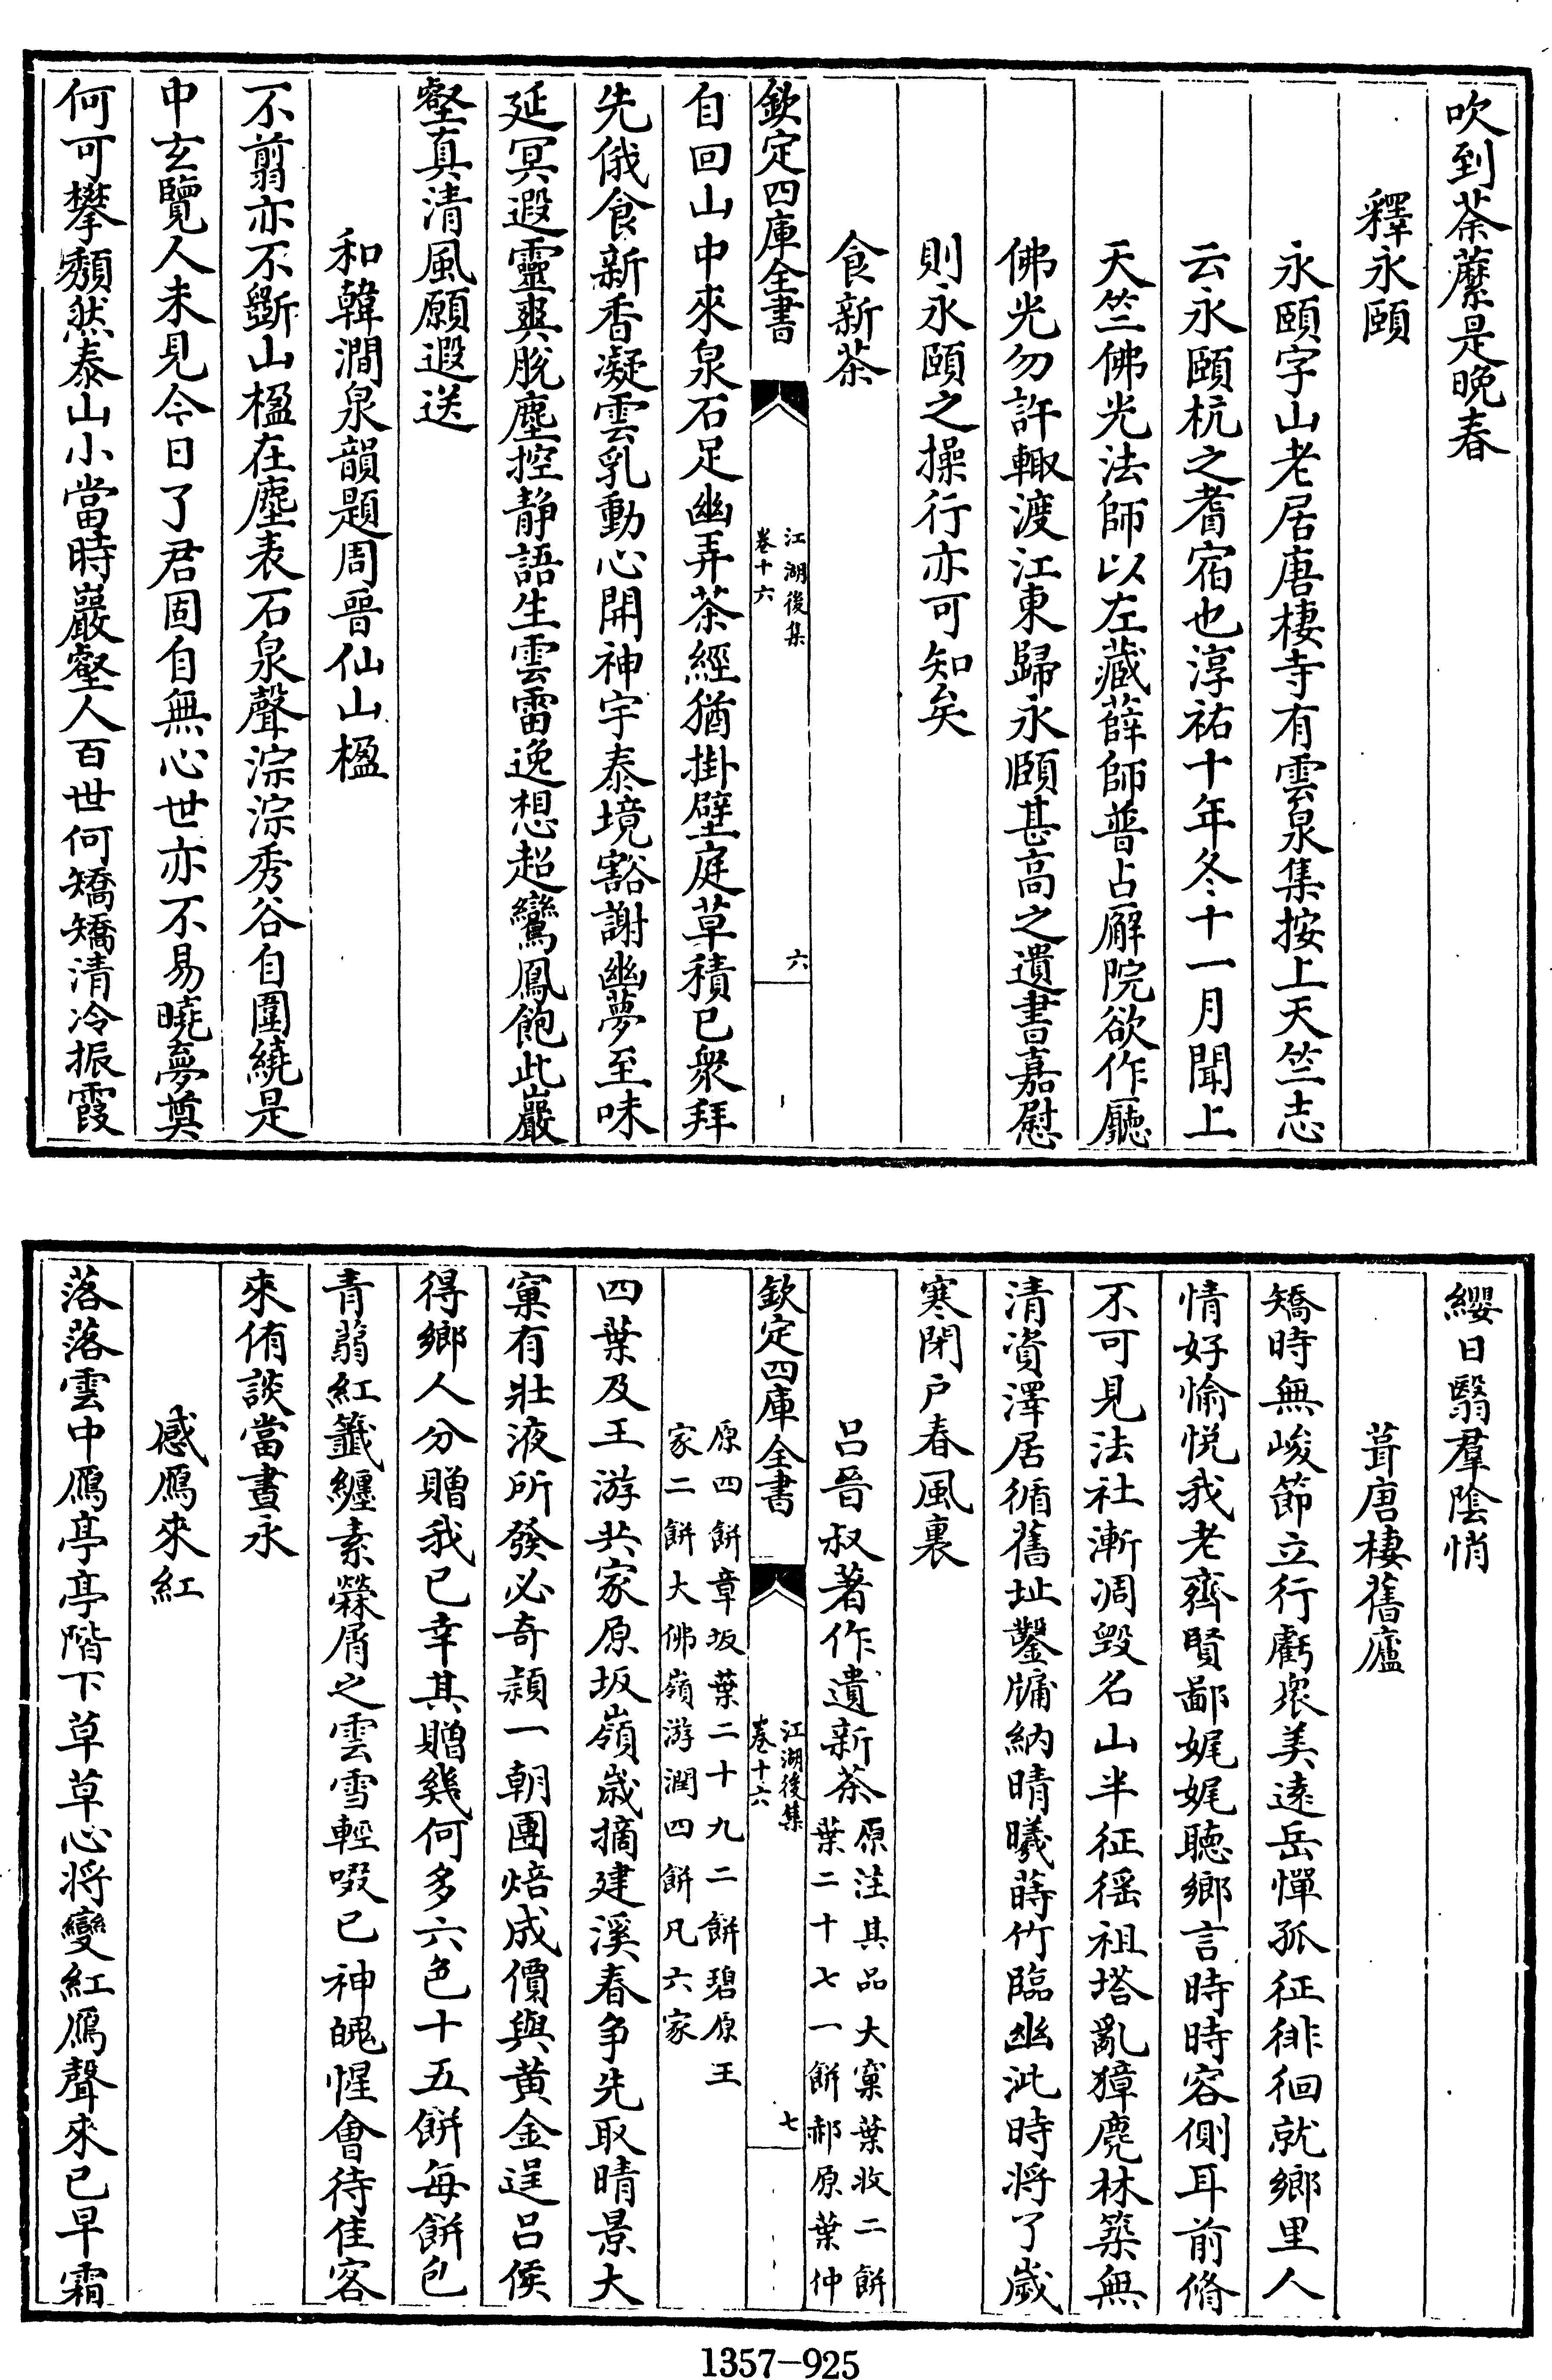 吹到荼蘼是晚春
釋永頤
永頤字山老居唐棲寺有雲泉集按上天竺志
云永頤杭之耆宿也淳祐十年冬十一月聞上
天竺佛光法師以左藏薛師普占廨院欲作廳
佛光勿許輙渡江東歸永頤甚高之遺書嘉慰
則永頤之操行亦可知矣
食新茶
欽定四庫全書
江湖後集
卷十六
六
自回山中來泉石足幽弄茶經猶掛壁庭草積已衆拜
先俄食新香凝雲乳動心開神宇泰境豁謝幽夢至味
延冥遐靈爽脫塵控静語生雲雷逸想超鸞鳳飽此巖
壑真清風願遐送
和韓澗泉韻題周晉仙山楹
不翦亦不斲山楹在塵表石泉聲淙淙秀谷自圍繞是
中玄覽人未見今日了君固自無心世亦不易曉夢奠
何可攀頽然泰山小當時巖壑人百世何矯矯清冷振霞
纓日翳羣陰悄
葺唐棲舊廬
矯時無峻節立行虧衆美遠岳憚孤征徘徊就鄉里人
情好愉悦我老齊賢鄙娓娓聴鄉言時時容側耳前脩
不可見法社漸凋毁名山半征徭祖塔亂獐麂林築無
清資澤居循舊址鑿牗納晴曦蒔竹臨幽沚時将了歳
寒閉户春風裏
吕晉叔著作遺新茶
原注其品大窠葉收二餅
葉二十七一餅郝原葉仲
原四餅章坂葉二十九二餅碧原王
家二餅大佛嶺游潤四餅凡六家
欽定四庫全書
江湖後集
卷十六
七
四葉及王游共家原坂嶺歳摘建溪春争先取晴景大
窠有壯液所發必奇頴一朝團焙成價與黄金逞吕侯
得鄉人分贈我已幸其贈幾何多六色十五餅每餅包
青蒻紅籤纏素檾屑之雲雪輕啜已神魄惺會待佳客
來侑談當晝永
感鴈來紅
落落雲中鴈亭亭階下草草心将變紅鴈聲來已早霜
1357-925